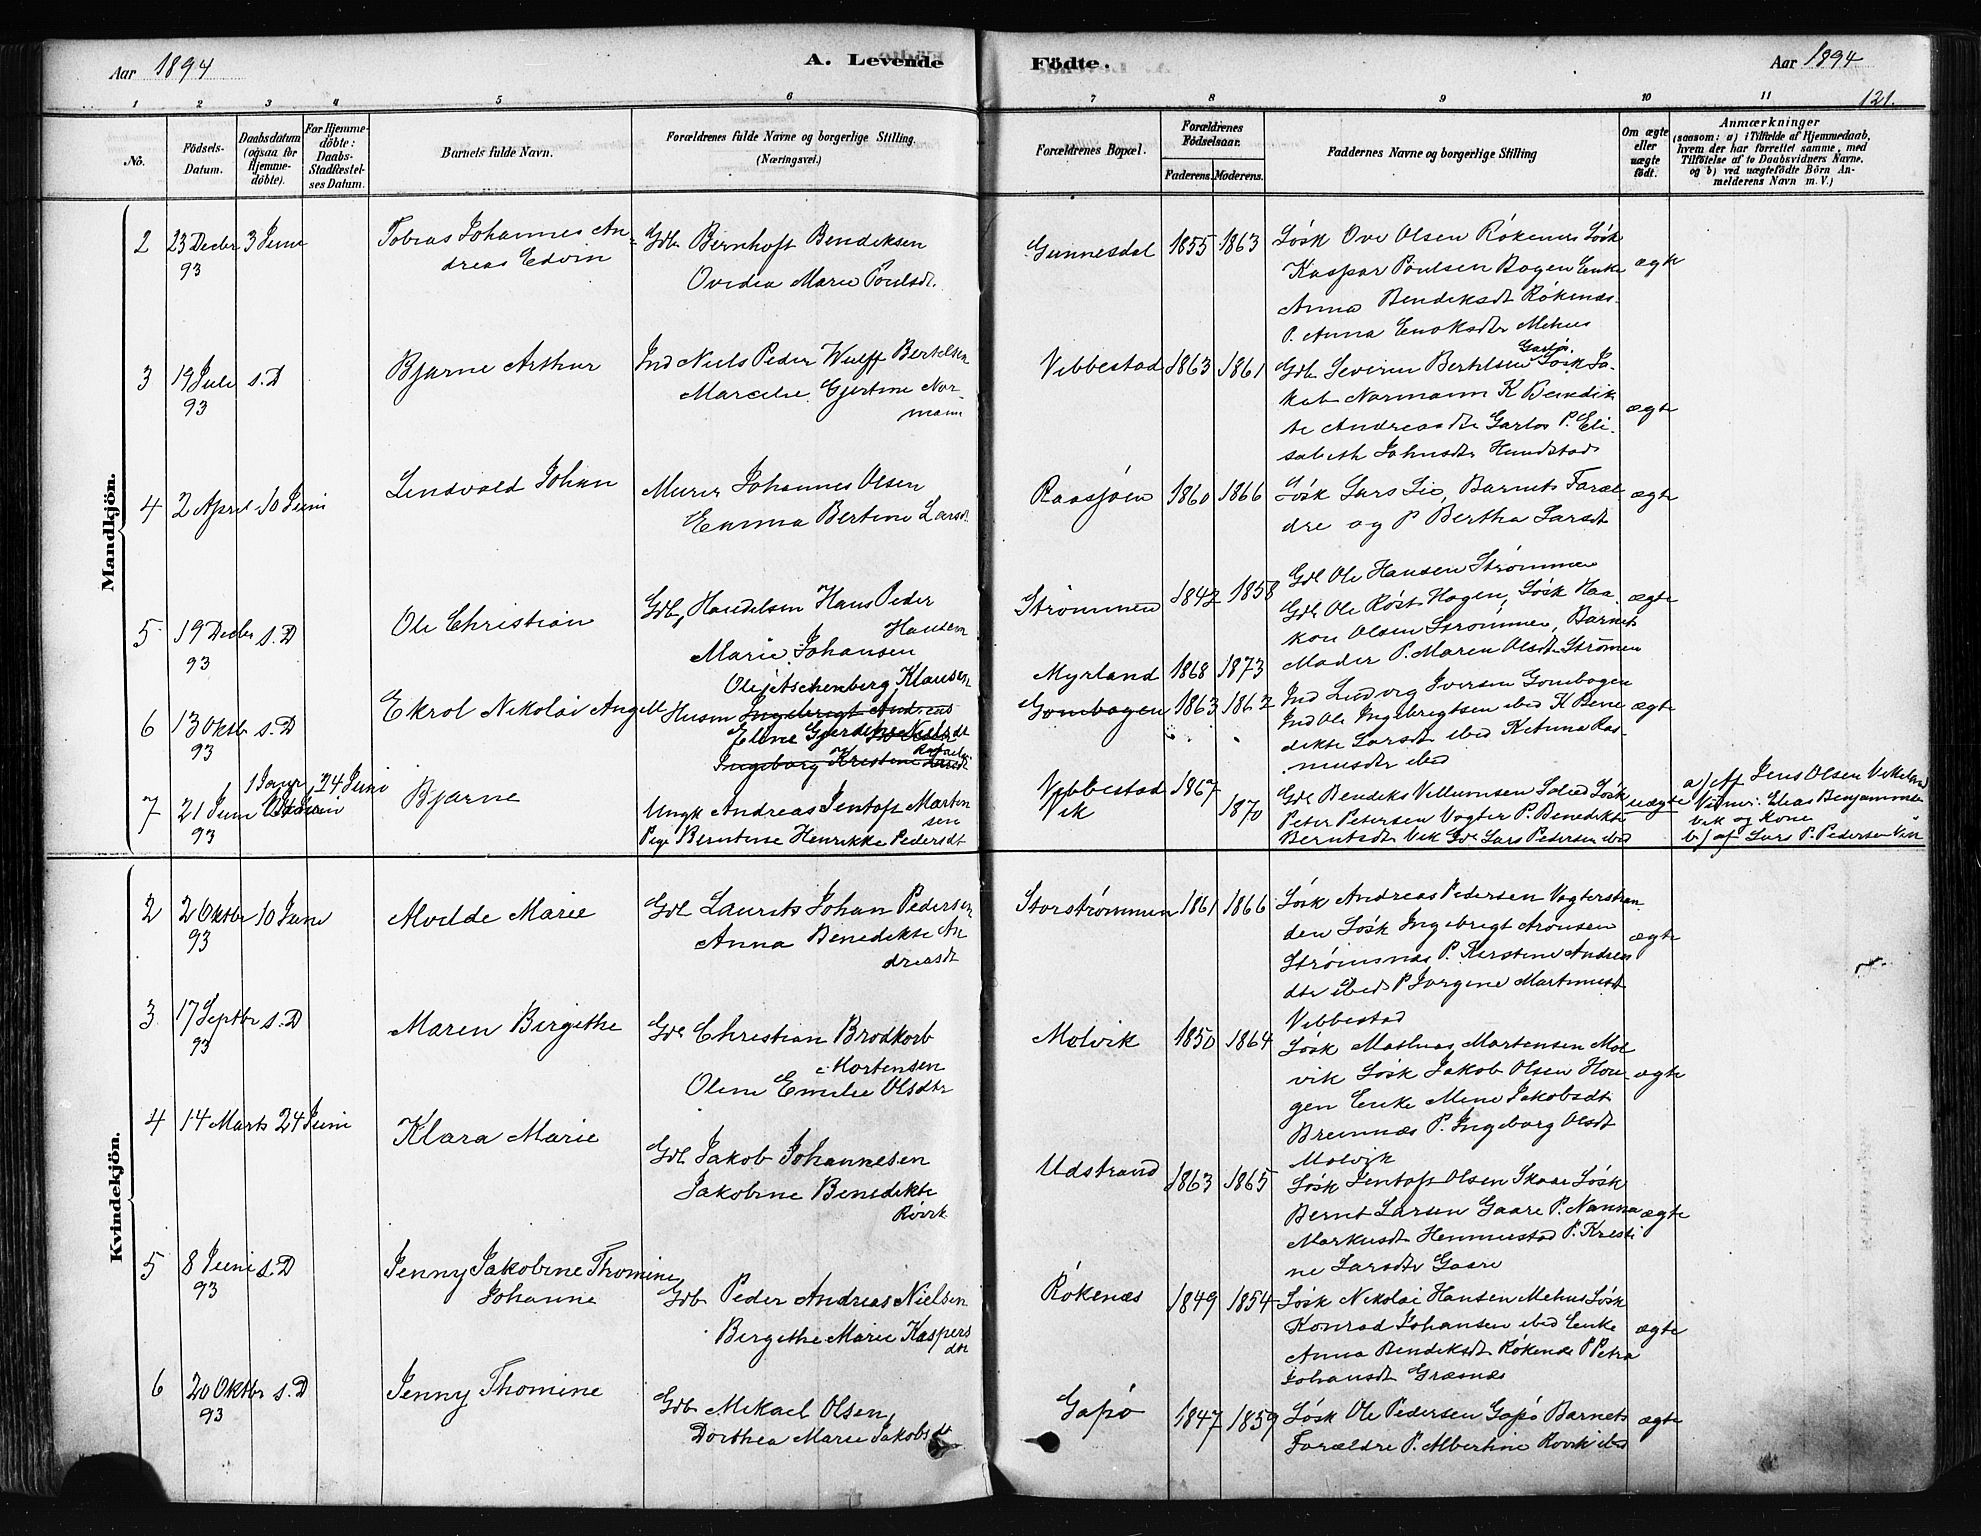 Aar 1894
A. Levende
Födte.
Aar 1894
121.
1 2 3 4 5 6 7 8 9 10 11
No.
Födsels-Datum.
Daabsdatum (ogsaa for Hjemme-döbte).
For Hjemme-döbte: Daabs-Stadfæstel-ses Datum.
Barnets fulde Navn.
Forældrenes fulde Navne og borgerlige Stilling.
(Næringsvei.)
Forældrenes Bopæl.
Forældrenes Födselsaar.
Faderens. Moderens.
Faddernes Navne og borgerlige Stilling
Om ægte eller uægte födt.
Anmærkninger
(saasom: a) i Tilfælde af Hjemmedaab,
hvem der har forrettet samme, med
Tilföielse af to Daabsvidners Navne.
og b) ved uægtefödte Börn An-
melderens Navn m. V.)
Mandkjön.
2 23 Decbr 93 3 Juni
Tobias Johannes An-
dreas Edvin
Gdb Bernhoft Bendiksen
Ovedia Marie Poulsdt.
Gunnesdal 1855 1863
Løsk Ove Olsen Røkenes Løsk
Kaspar Poulsen Bogen Enke
Anna Bendiksdt Røkenæs
P. Anna Enoksdtr Mehus
ægte
3 19 Juli 93 s.D
Bjarne Arthur
Ind Niels Peder Wulff Bertelsen
Marcelie Gjertine Nor-
mann
Vebbestad 1863 1861
Garlos
Gdb Severin Bertelsen Løsk Ja-
kob Normann K Bendik
te Andreasdt Garlos P. Eli-
sabeth Johnsdtr Hundstad
ægte
4 2 April 10 Juni
Lindvald Johan
Murer Johannes Olsen
Emma Bertine Larsdt.
Raasjøen 1860 1866
Løsk Lars Lie, Barnets Foræl
dre og P Bertha Larsdt
ægte
5 19 Decbr 93 s.D
Ole Christian
Gdb, Handelsm Hans Peder
Hansen
Marie Johansen
Strømmen 1842 1858
Gdl Ole Hansen Strømmen
Gdl Ole Røst Hagen, Løsk Haa-
kon Olsen Strømmen, Barnets
Moder P. Maren Olsdt Strømen
ægte
6 13 Oktb 93 s.D
Ekrol Nikolai Angell
Ole Aschenberg Klausen
Husm Ingebrigt Andreas
Elene Gjerdine Nielsdt
Ingeborg Kristine
Myrland 1868 1873
Gombogen 1863 1862
Ind Ludvig Iversen Gombogen
Ind Ole Ingebrigtsen ibid K Bene
dikte Larsdt ibid K Anna Ras-
musdtr ibid
ægte
7 21 Juni 93 24 Juni
Bjarne
Ungk Andreas Jentoft Martin
sen
Pige Berntine Henrikke Pedersdt
Vebbestad 1867
Vik 1870
Gdl Bendiks Villumsen Løsk
Peter Petersen Vogter P. Benedikte
Berntsdt Vik Gdr Lars Pedersen ibid
uægte
a) Af Jens Olsen
Vidner: Elias Benjaminsen
Vik og Kone
b) af Lars P. Pedersen Vik
Kvindekjön.
2 2 Oktbr 93 10 Juni
Alvilde Marie
Gdl Laurits Johan Pedersen
Anna Benedikte An
dreasdt
Storstrømmen 1861 1866
Løsk Andreas Pedersen Vogterstran-
den Løsk Ingebrigt Aronsen
Strømsnæs P. Kirstine Andreas
dtr ibid P Jørgine Martinusdt
Vebbestad
ægte
3 17 Septbr 93 s.D
Maren Birgithe
Gdl Christian Brodkorb
Mortensen
Oline Emelie Olsdtr
Molvik 1850 1864
Løsk Mathias Mortensen Mol
vik Løsk Jakob Olsen Hou-
gen Enke Mine Jakobsdt
Bremnæs P. Ingeborg Olsdt
Molvik
ægte
4 14 Marts 24 Juni
Klara Marie
Gdl Jakob Johannesen
Jakobine Benedikte
Rivik
Udstrand 1863 1865
Løsk Jentoft Olsen Skaar Løsk
Bernt Larsen Gaare P. Nanna
Markusdt Hemmestad P. Kristi
ne Larsdtr Gaare
ægte
5 8 Juni 93 s.D
Jenny Jakobine Thomine
Johanne
Gdb Peder Andreas Nielsen
Birgithe Marie Kaspers
dtr
Røkenæs 1849 1854
Løsk Nikolai Hansen Mehus Løsk
Konrad Johansen ibid Enke
Anna Bendiksdt Røkenæs P Petra
Johansdt Grasnæs
ægte
6 20 Oktbr 93 s.D
Jenny Thomine
Gdb Mikael Olsen
Dorthea Marie Jakobsdt
Gapø 1847 1859
Løsk Ole Pedersen Gapø Barnets
Forældre P. Albertine Rovik ibid
ægte